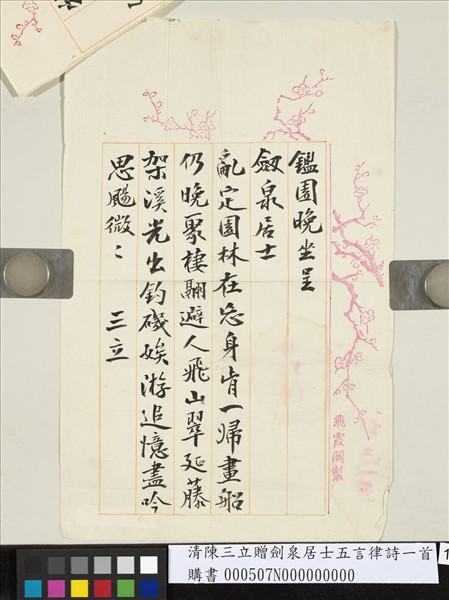 鑑園晚坐呈
劔泉居士
亂定園林在忘身肯一歸畫船
仍晚聚棲翮避人飛山翠延藤
架溪光出釣磯娭游追憶盡吟
思颺微〻 三立
飛霞閣製
清陳三立贈劍泉居士五言律詩一首
購書 000507N000000000